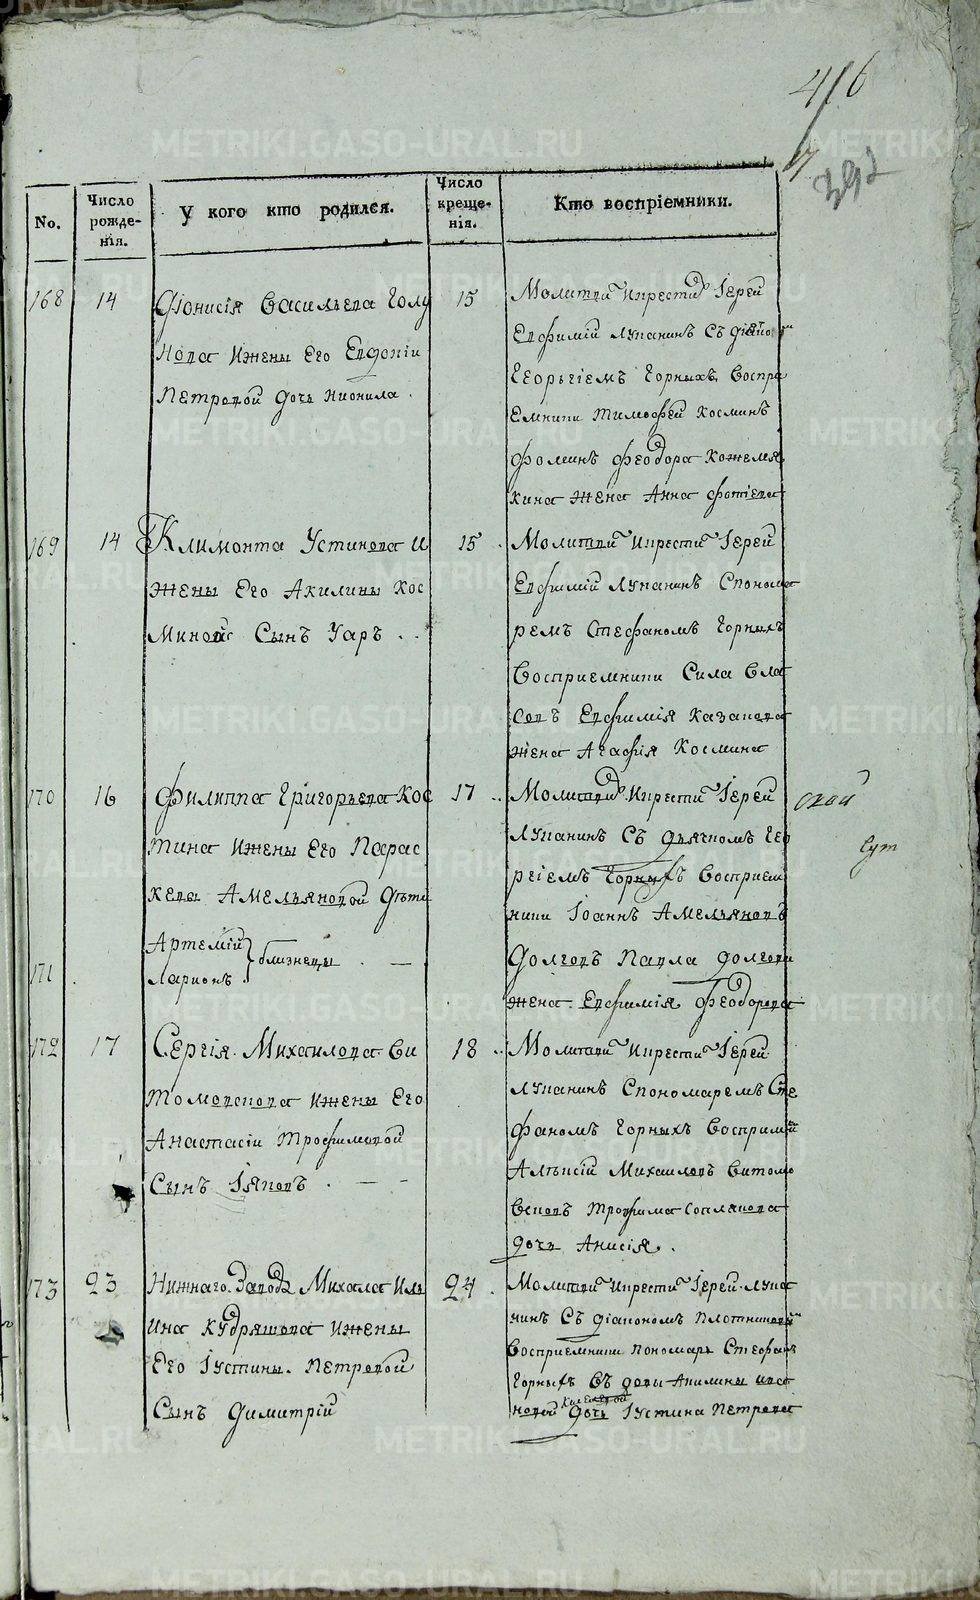 416
17
392
No.
Число рожде-
нія.
У кого кто родился.
Число креще-
нія.
Кто воспріемники.
168
14
Діонисія Васильева Голу
нова и жены Его Евдокіи
Петровой дочь Нионила.
15
Молитви и прести Іерей
Евфимій Лупанинъ съ діако
Георьгіемъ Горныхъ Воспри
емники Тимофей Косминъ
Фоминъ Феодора Кожемя
кина жена Анна Фотіева
169
14
Климонта Устинова и
жены Его Акилины Кос
Миной Сынъ Уаръ . .
15
Молитви и прести Іерей
Евфимій Лупанинъ С поном
ремъ Стефаномъ Горныхъ
Восприемники Сила Вла
совъ Евфимія Казакова
жена Агафія Космина
170
16
Филиппа Григорьева Кос
тина и жены Его Парас
кевы Амельяновой Дѣти
171
Артемій
Ларионъ } близнецы . —
17
Молитви и прести Іерей
Лупанинъ съ дьячкомъ Гео
ргіемъ Горныхъ Восприем
ники Іоаннъ Амельяновъ
Долговъ Павла Долгова
жена Евфимія Феодорова
172
17
Сергія Михаилова Ви
томоскова и жены Его
Анастасіи Трофимовой
Сынъ Іяковъ . — —
18
Молитви и прести Іерей
Лупанинъ С пономаремъ Сте
фаномъ Горныхъ Восприм
Алѣксій Михаиловъ Витомо
сковъ Трофима Соплякова
дочь Анисія .
173
23
Нижнаго Завод Михаила Иль
ина Кудряшова и жены
Его Іустины Петровой
Сынъ Димитрій
24
Молитви и прести Іерей Лупа
нинъ съ діакономъ Плотников
Восприемники пономарь Стефанъ
Горныхъ
дочь Іустина Петрова